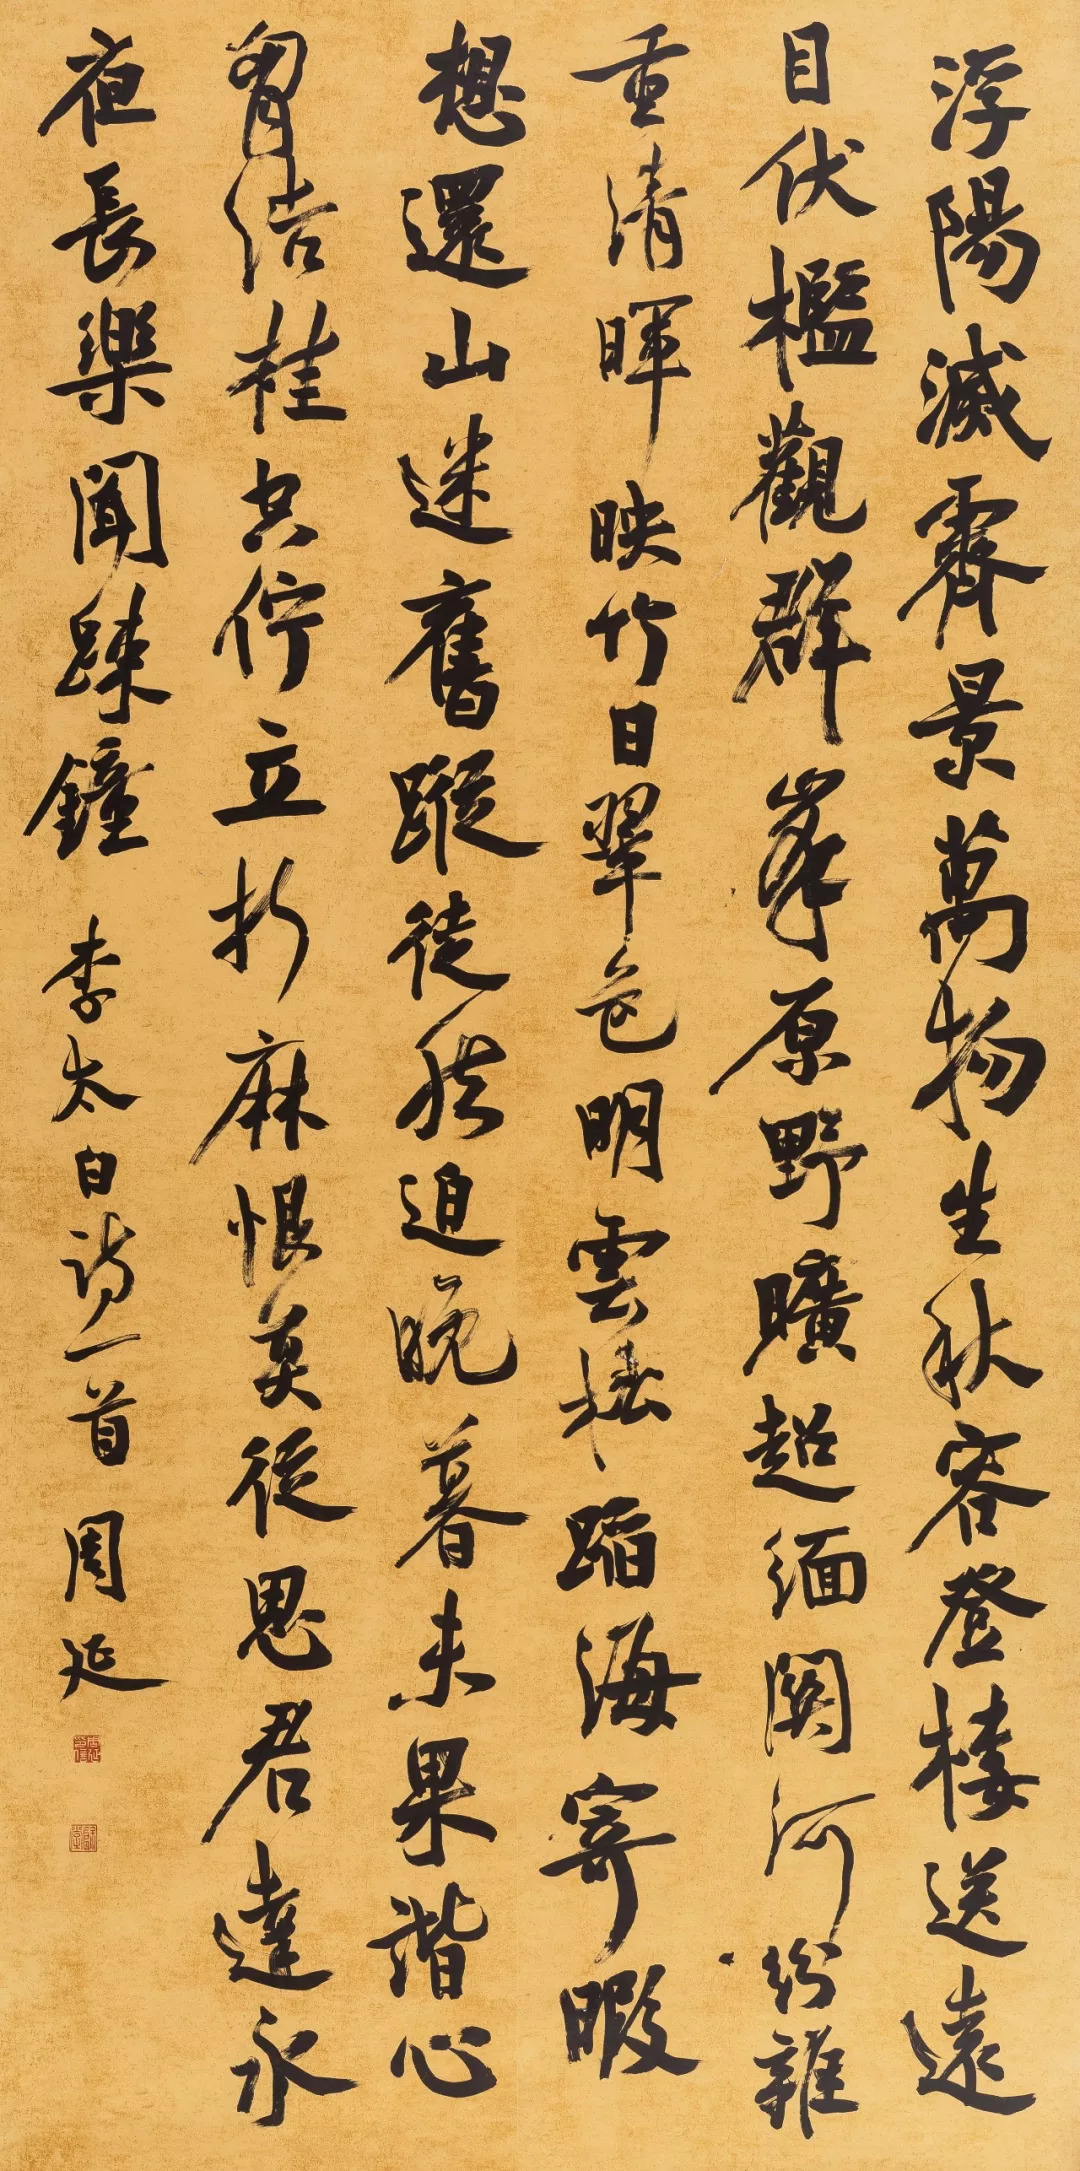 浮陽滅霽景萬物生秋容登樓送遠
目伏檻觀群峯原野曠超緬關河紛雜
重清暉映竹日翠色明雲松蹈海寄暇
想還山迷舊蹤徒然迫晚暮未果諧心
胷結桂空佇立折麻恨莫從思君達永
夜長樂聞踈鐘 李太白詩一首 周延